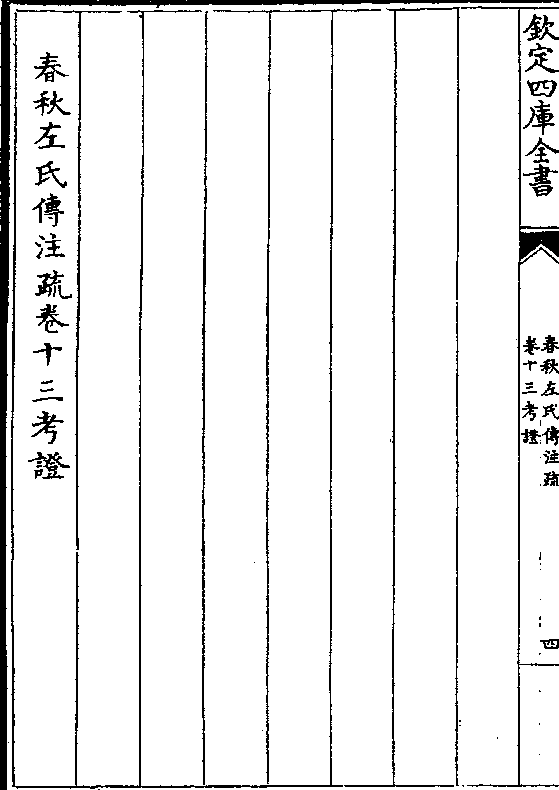 欽定四庫全書
春秋左氏傳注疏
卷十三考證
四
春秋左氏傳注疏卷十三考證